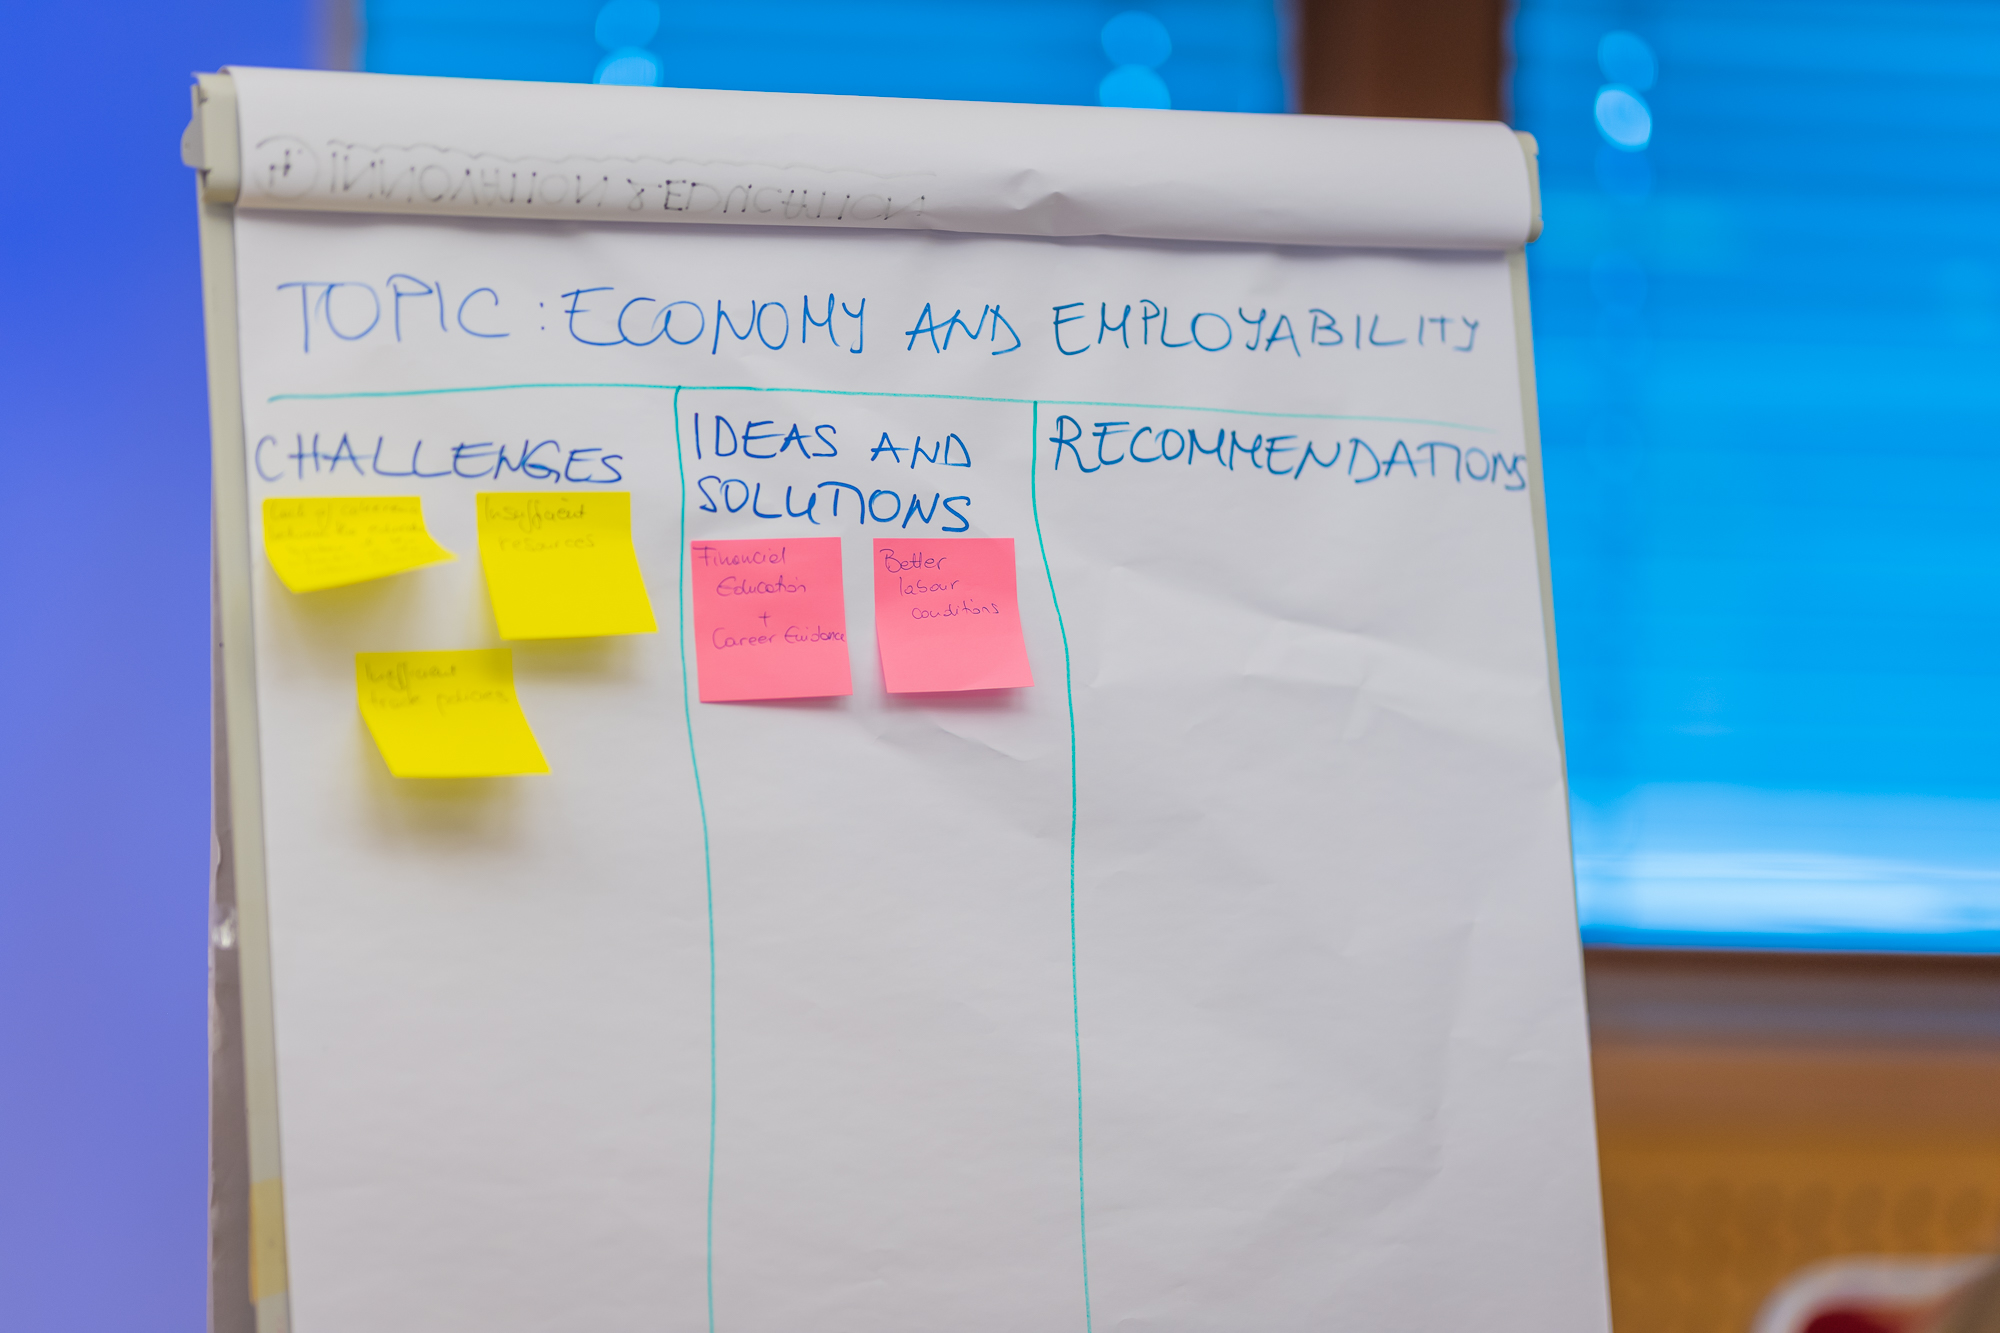 INNOVATION & EDUCATION
TOPIC: ECONOMY AND EMPLOYABILITY
CHALLENGES
Lack of
between the
Insufficient
resources
Insufficient
trade policies
IDEAS AND
SOLUTIONS
Financial
Education
+
Career Guidance
Better
labour
conditions
RECOMMENDATIONS